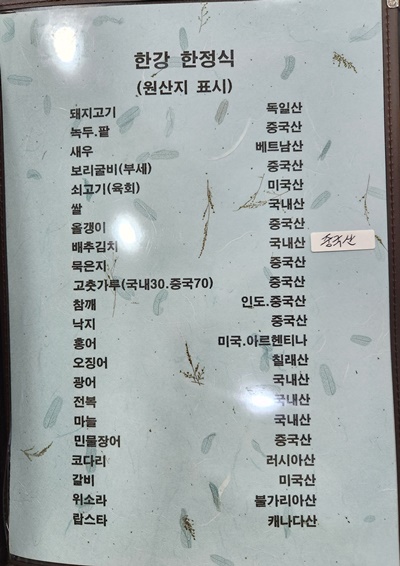 한강 한정식
(원산지 표시)
돼지고기 독일산
녹두.팥 중국산
새우 베트남산
보리굴비(부세) 중국산
쇠고기(육회) 미국산
쌀 국내산
올갱이 중국산
배추김치 국내산 중국산
묵은지 중국산
고춧가루(국내30.중국70) 중국산
참깨 인도.중국산
낙지 중국산
홍어 미국.아르헨티나
오징어 칠래산
광어 국내산
전복 국내산
마늘 국내산
민물장어 중국산
코다리 러시아산
갈비 미국산
위소라 불가리아산
랍스타 캐나다산